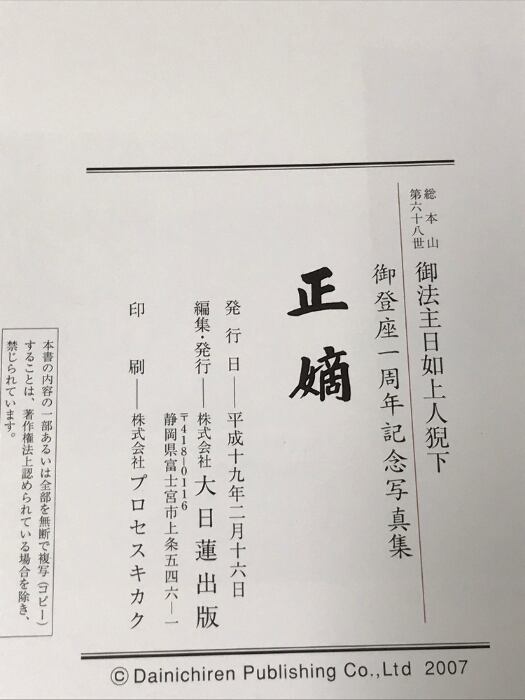 総本山
第六十八世
御法主日如上人猊下
御登座一周年記念写真集
正嫡
発行日―平成十九年二月十六日
編集・発行―株式会社大日蓮出版
〒418-0116
静岡県富士宮市上条五四六―一
印刷―株式会社プロセスキカク
本書の内容の一部あるいは全部を無断で複写(コピー)
することは、著作権法上認められている場合を除き、
禁じられています。
©Dainichiren Publishing Co.,Ltd 2007